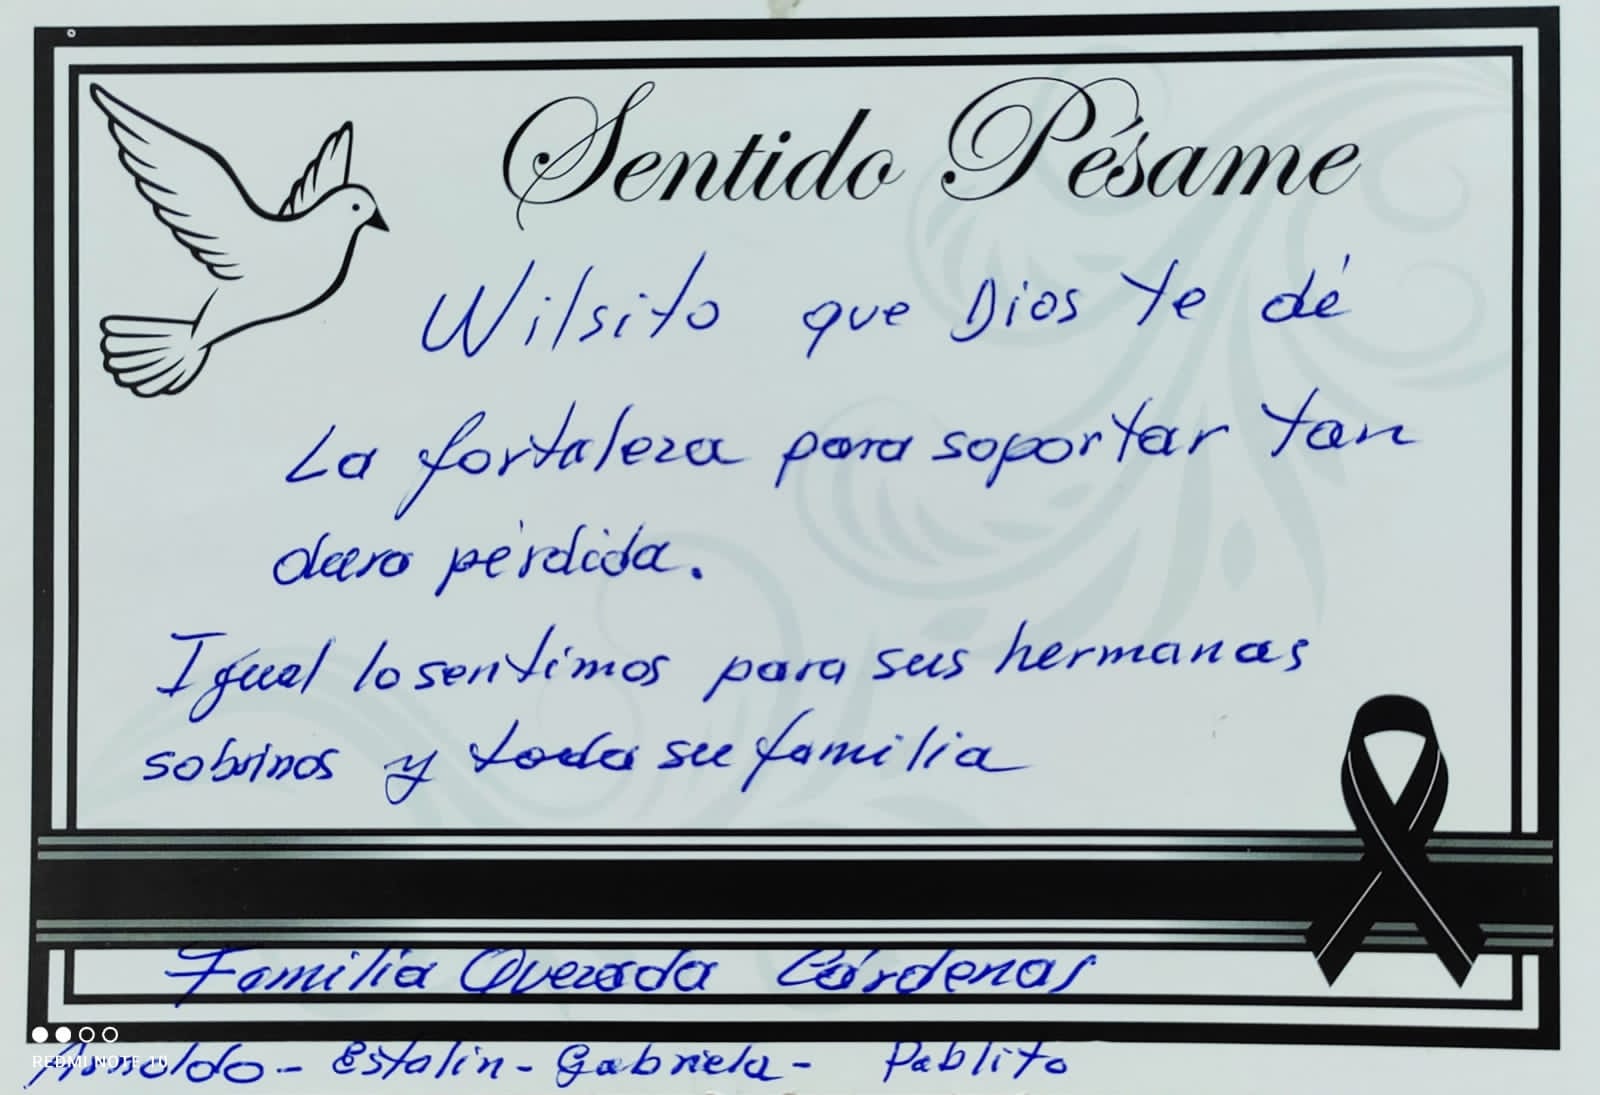 Sentido Pésame
Wilsito que Dios te dé
La fortaleza para soportar tan
dura pérdida.
Igual lo sentimos para sus hermanas
sobrinos y toda su familia
Familia Quezada Cárdenas
REDMI NOTE 10
Arnoldo - Estalin - Gabriela - Pablito